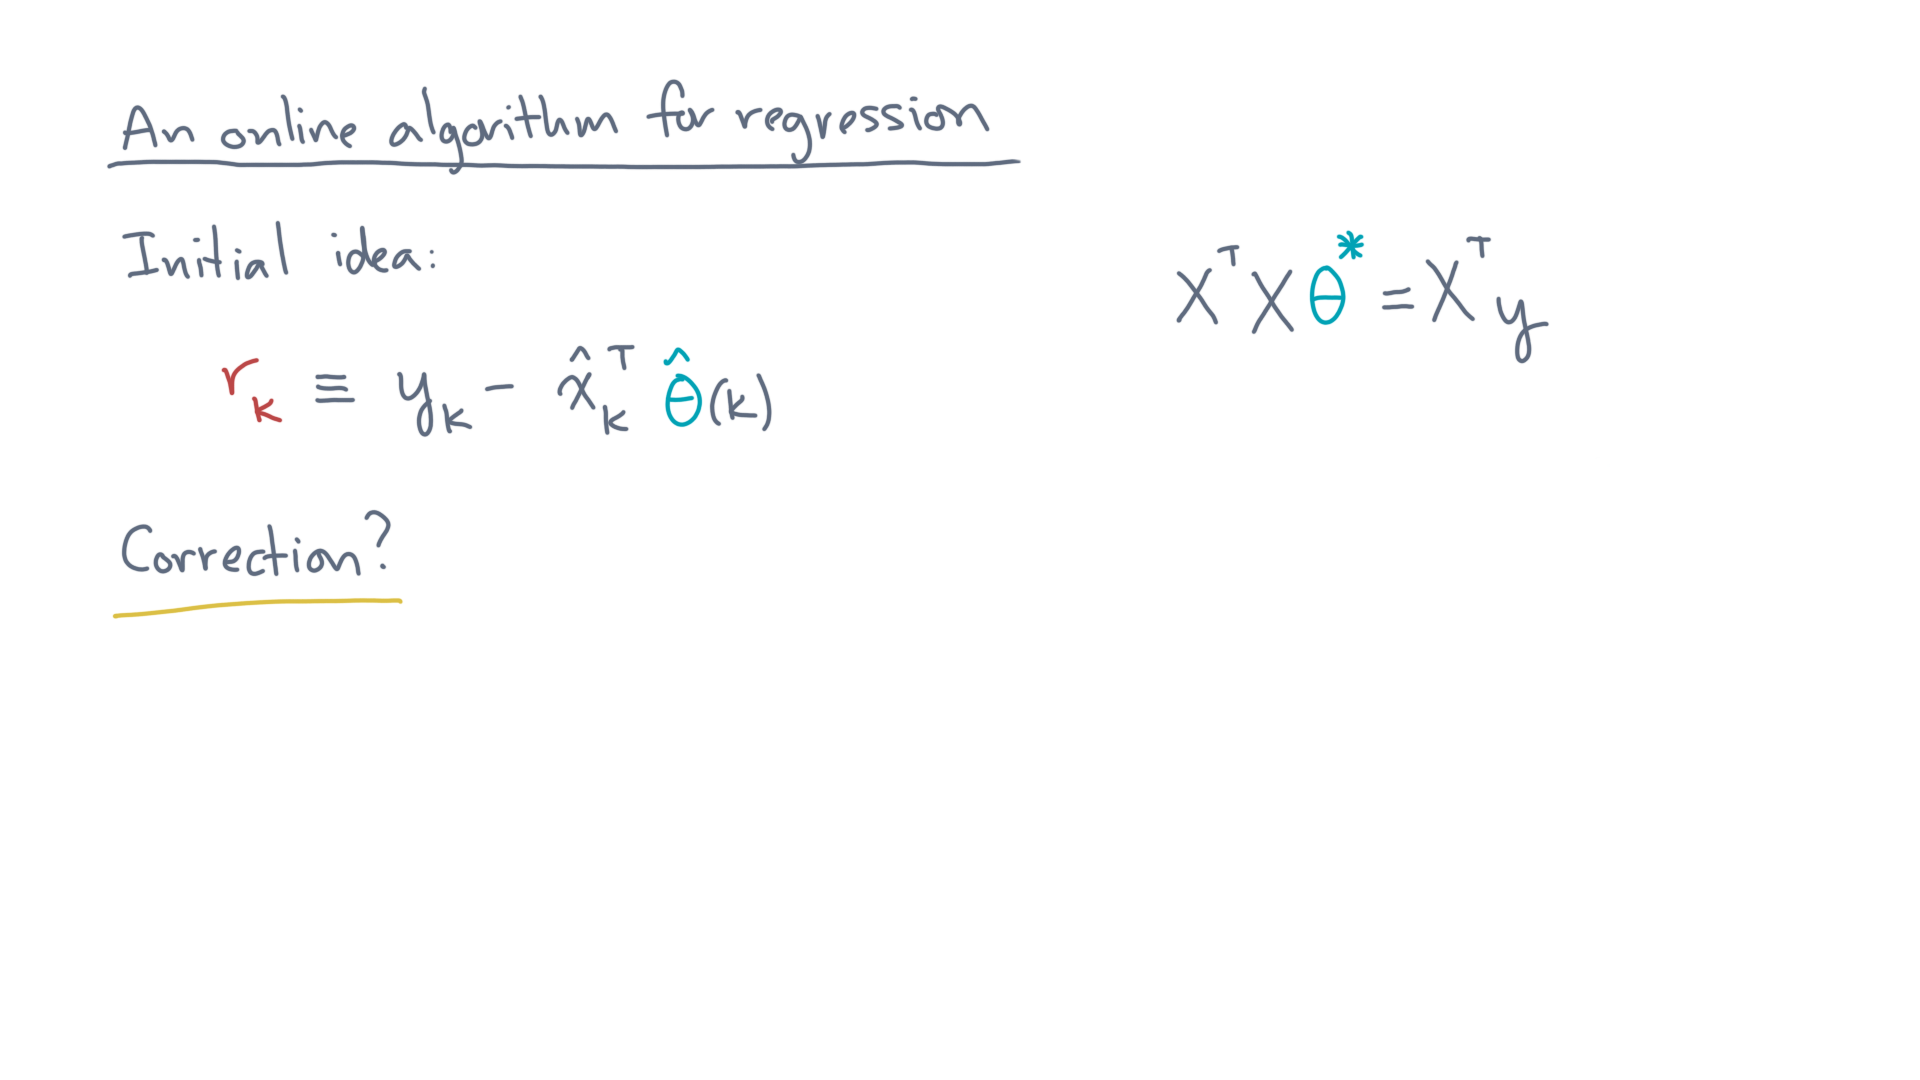 An online algorithm for regression
Initial idea:
XᵀXθ* = Xᵀy
rₖ ≡ yₖ - x̂ₖᵀ θ̂(k)
Correction?